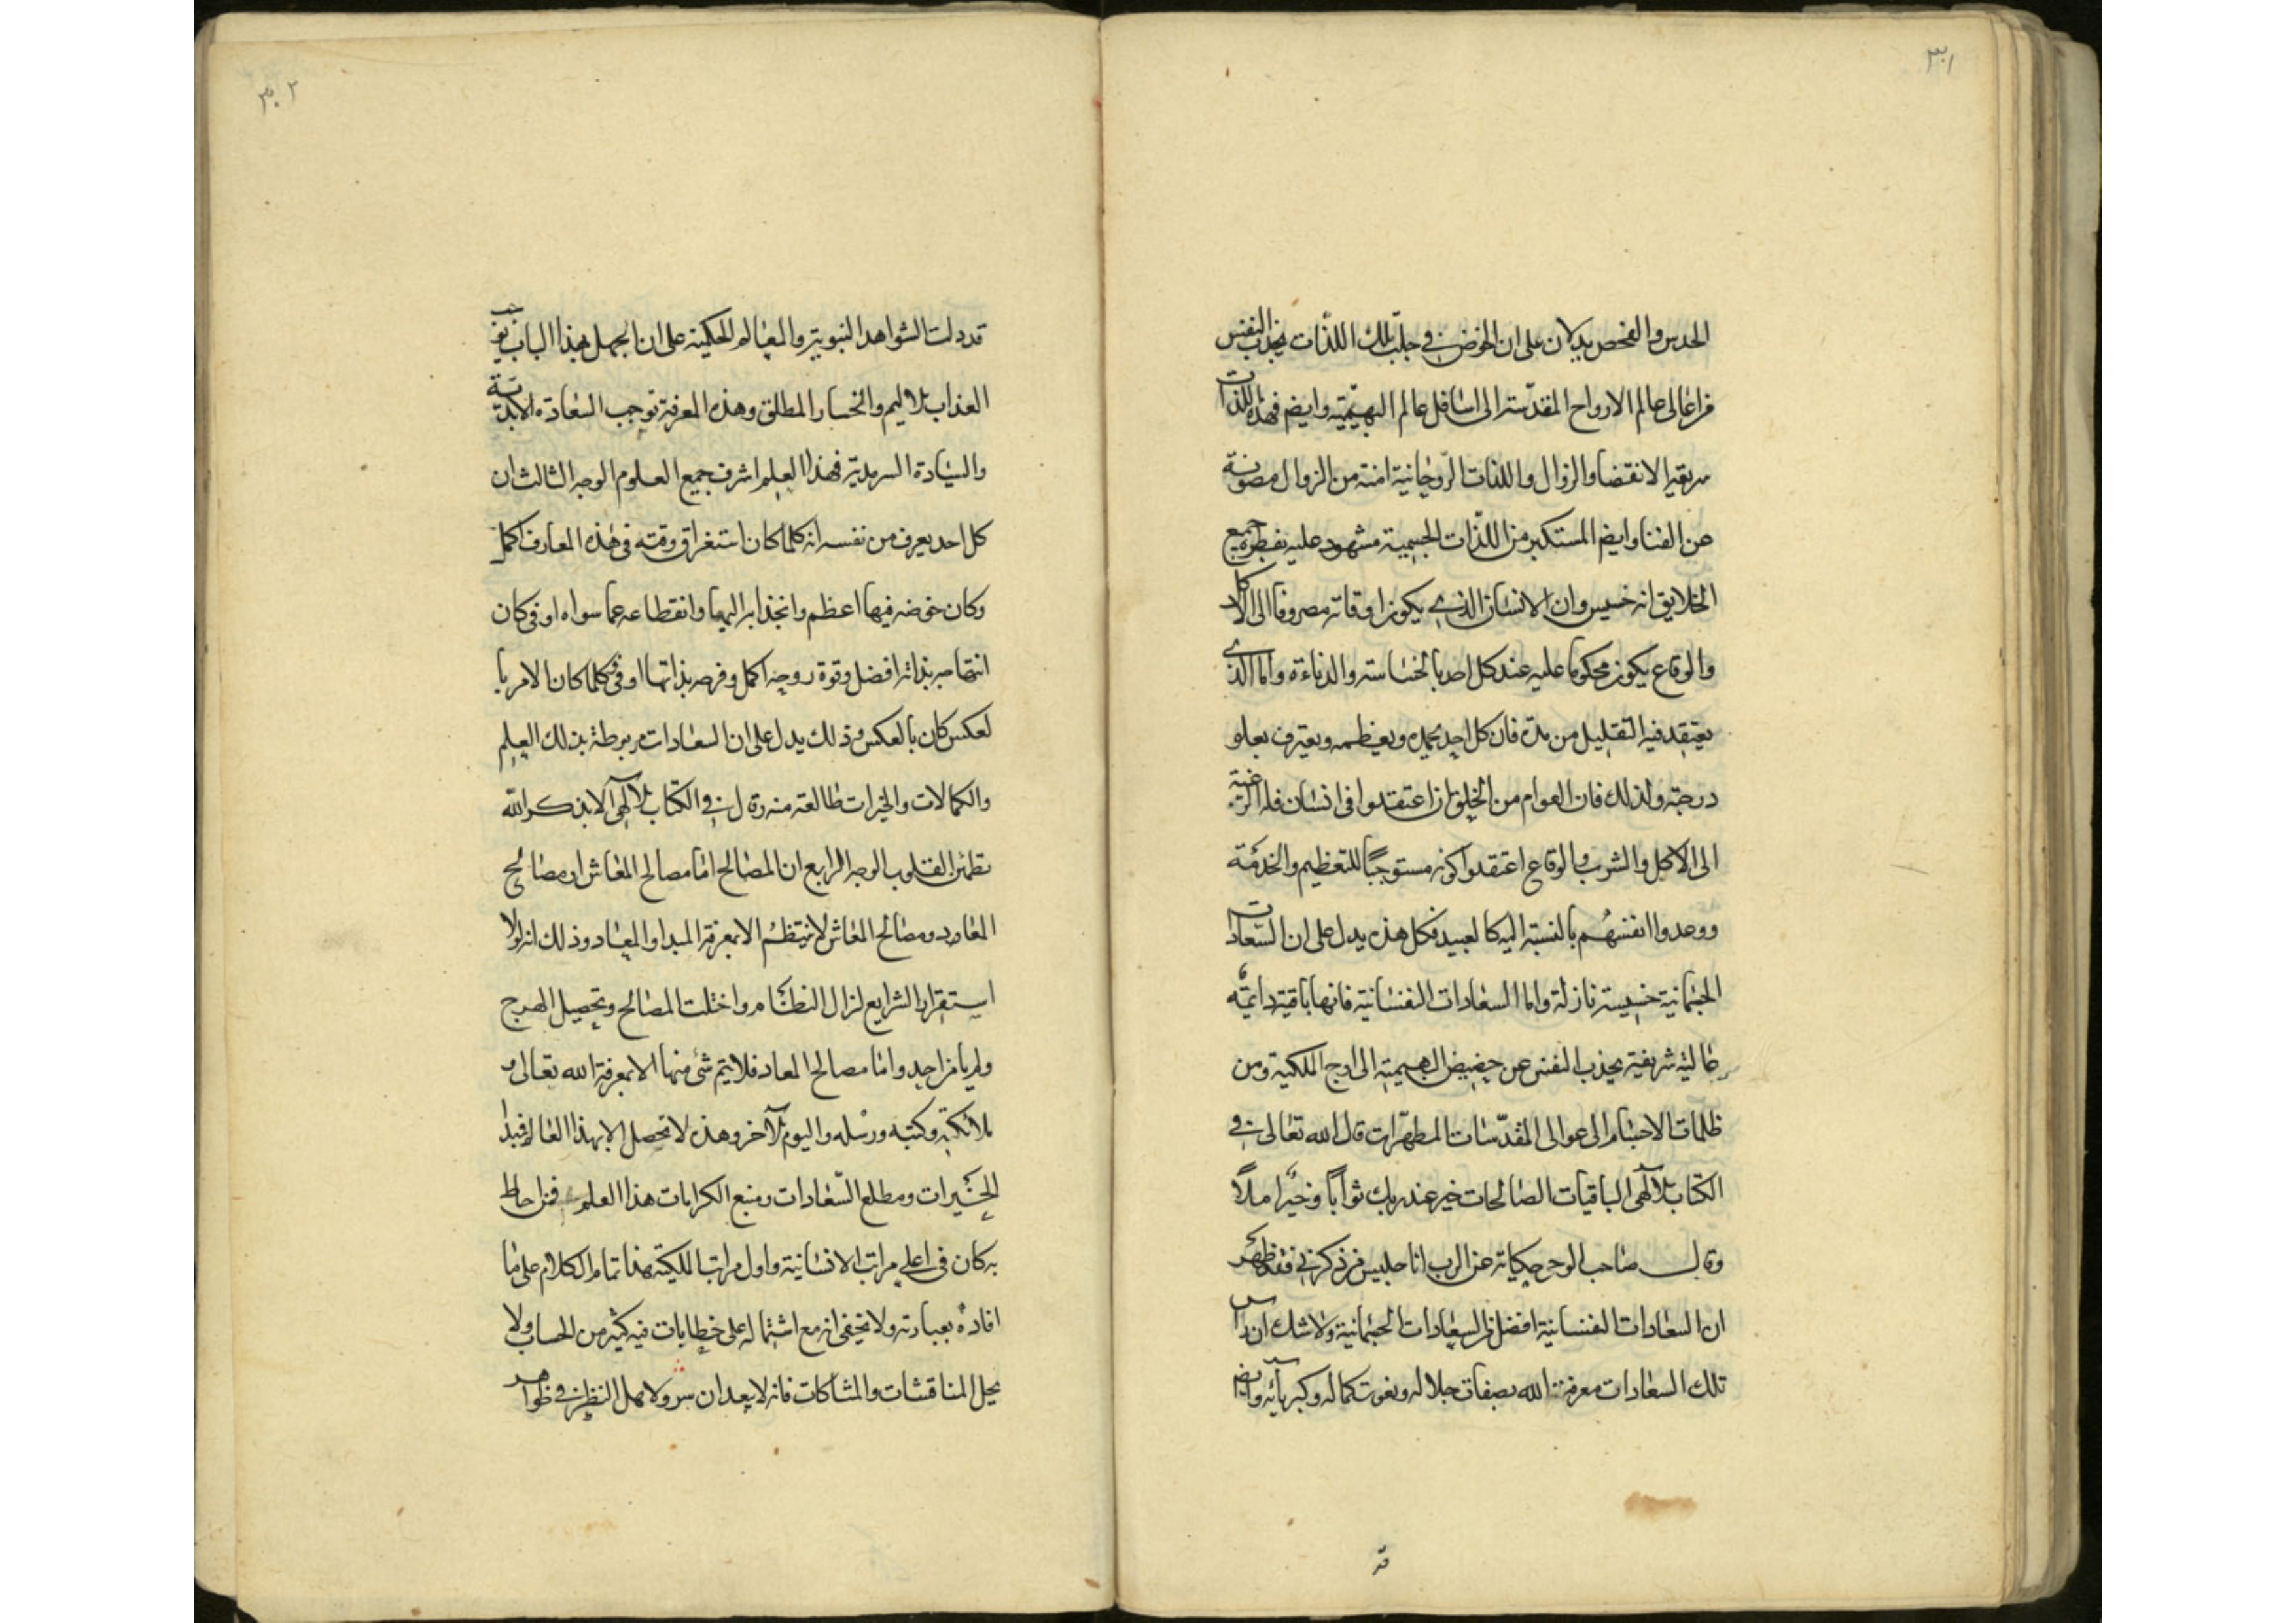 ٣٠١
الحدس والفحص يدلان على ان الخوض في جلب تلك اللذات يجذب النفس
من اعالى عالم الارواح المقدسة الى اسافل عالم البهيميّة وايضم فهذه اللذات
سريعة الانقضا والزوال واللذات الروحانية امنة من الزوال مصونة
عن الفنا وايضم المستكبر من اللذات الجسمية مشهود عليه بفطرة جميع
الخلايق انه خسيس وان الانسان الذي يكون اوقاته مصروفا الى الاكل
والوقاع يكون محكوما عليه عند كل احد بالخساسة والدناءة واما الذي
يعتقد فيه التقليل من هذه فان كل احد يحمده ويعظمه ويعترف بعلو
درجته ولذلك فان العوام من الخلق اذا اعتقدوا فى انسان قلة الرغبة
الى الاكل والشرب والوقاع اعتقدوا كونه مستوجبًا للتعظيم والخدمة
ووعدوا انفسهُم بالنسبة اليه كالعبيد فكل هذه يدل على ان السّعادات
الجسمانية خسيسة نازلة واما السعادات النفسانية فانها باقية دايمةً
عالية شريفة يجذب النفس عن حضيض البهيمية الى اوج الملكية ومن
ظلمات الاجسام الى عوالى المقدّسات المطهّرات قال الله تعالى في
الكتاب الآلهى الباقيات الصالحات خير عند ربك ثوابًا وخيرٌ املاً
وقال صاحب الوحى حكاية عن الرب انا جليس من ذكرني فقد ظهر
ان السعادات النفسانية افضل من السعادات الجسمانية ولا شك ان راس
تلك السعادات معرفة الله بصفات جلاله ونعوت كماله وكبريآئه وايضم
قد
٣٠٢
قد دلت الشواهد النبوية والمعالم الحكمية على ان الجهل بهذا الباب يوجب
العذاب الاليم والخسار المطلق وهذه المعرفة توجب السعادة الابديّة
والسيادة السرمدية فهذا العلم اشرف جميع العلوم الوجه الثالث ان
كل احد يعرف من نفسه انه كلما كان استغراق وقته فى هذه المعارف اكمل
وكان خوضه فيها اعظم وانجذابه اليها وانقطاعه عما سواه اوفى كان
ابتهاجه بذاته افضل وقوة روحه اكمل وفرحه بذاتها اوفى وكلما كان الامر با
لعكس كان بالعكس وذلك يدل على ان السعادات مربوطة بذلك العلم
والكمالات والخيرات طالعة منه قال في الكتاب الآلهى الا بذكر الله
تطمئن القلوب الوجه الرابع ان المصالح اما مصالح المعاش او مصالح
المعاد ومصالح المعاش لا ينتظم الا بمعرفة المبدا والمعاد وذلك انه لولا
استقرار الشرايع لزال النظام واختلت المصالح وتحصيل الهرج
ولم يامن احد واما مصالح المعاد فلا يتم شئ منها الا بمعرفة الله تعالى و
ملائكته وكتبه ورسله واليوم الآخر وهذه لا تحصل الا بهذا العلم فمبدا
الخيرات ومطلع السّعادات ومنبع الكرامات هذا العلم فمن احاط
به كان فى اعلى مراتب الانسانية واول مراتب الملكية هذا تمام الكلام على ما
افاده بعبارته ولا يخفى انه مع اشتماله على خطابيات فيه كثير من الحساب ولا
يحل المناقشات والمشاكات فانه لا يبعد ان ولا يهمل النظر في ظواهر